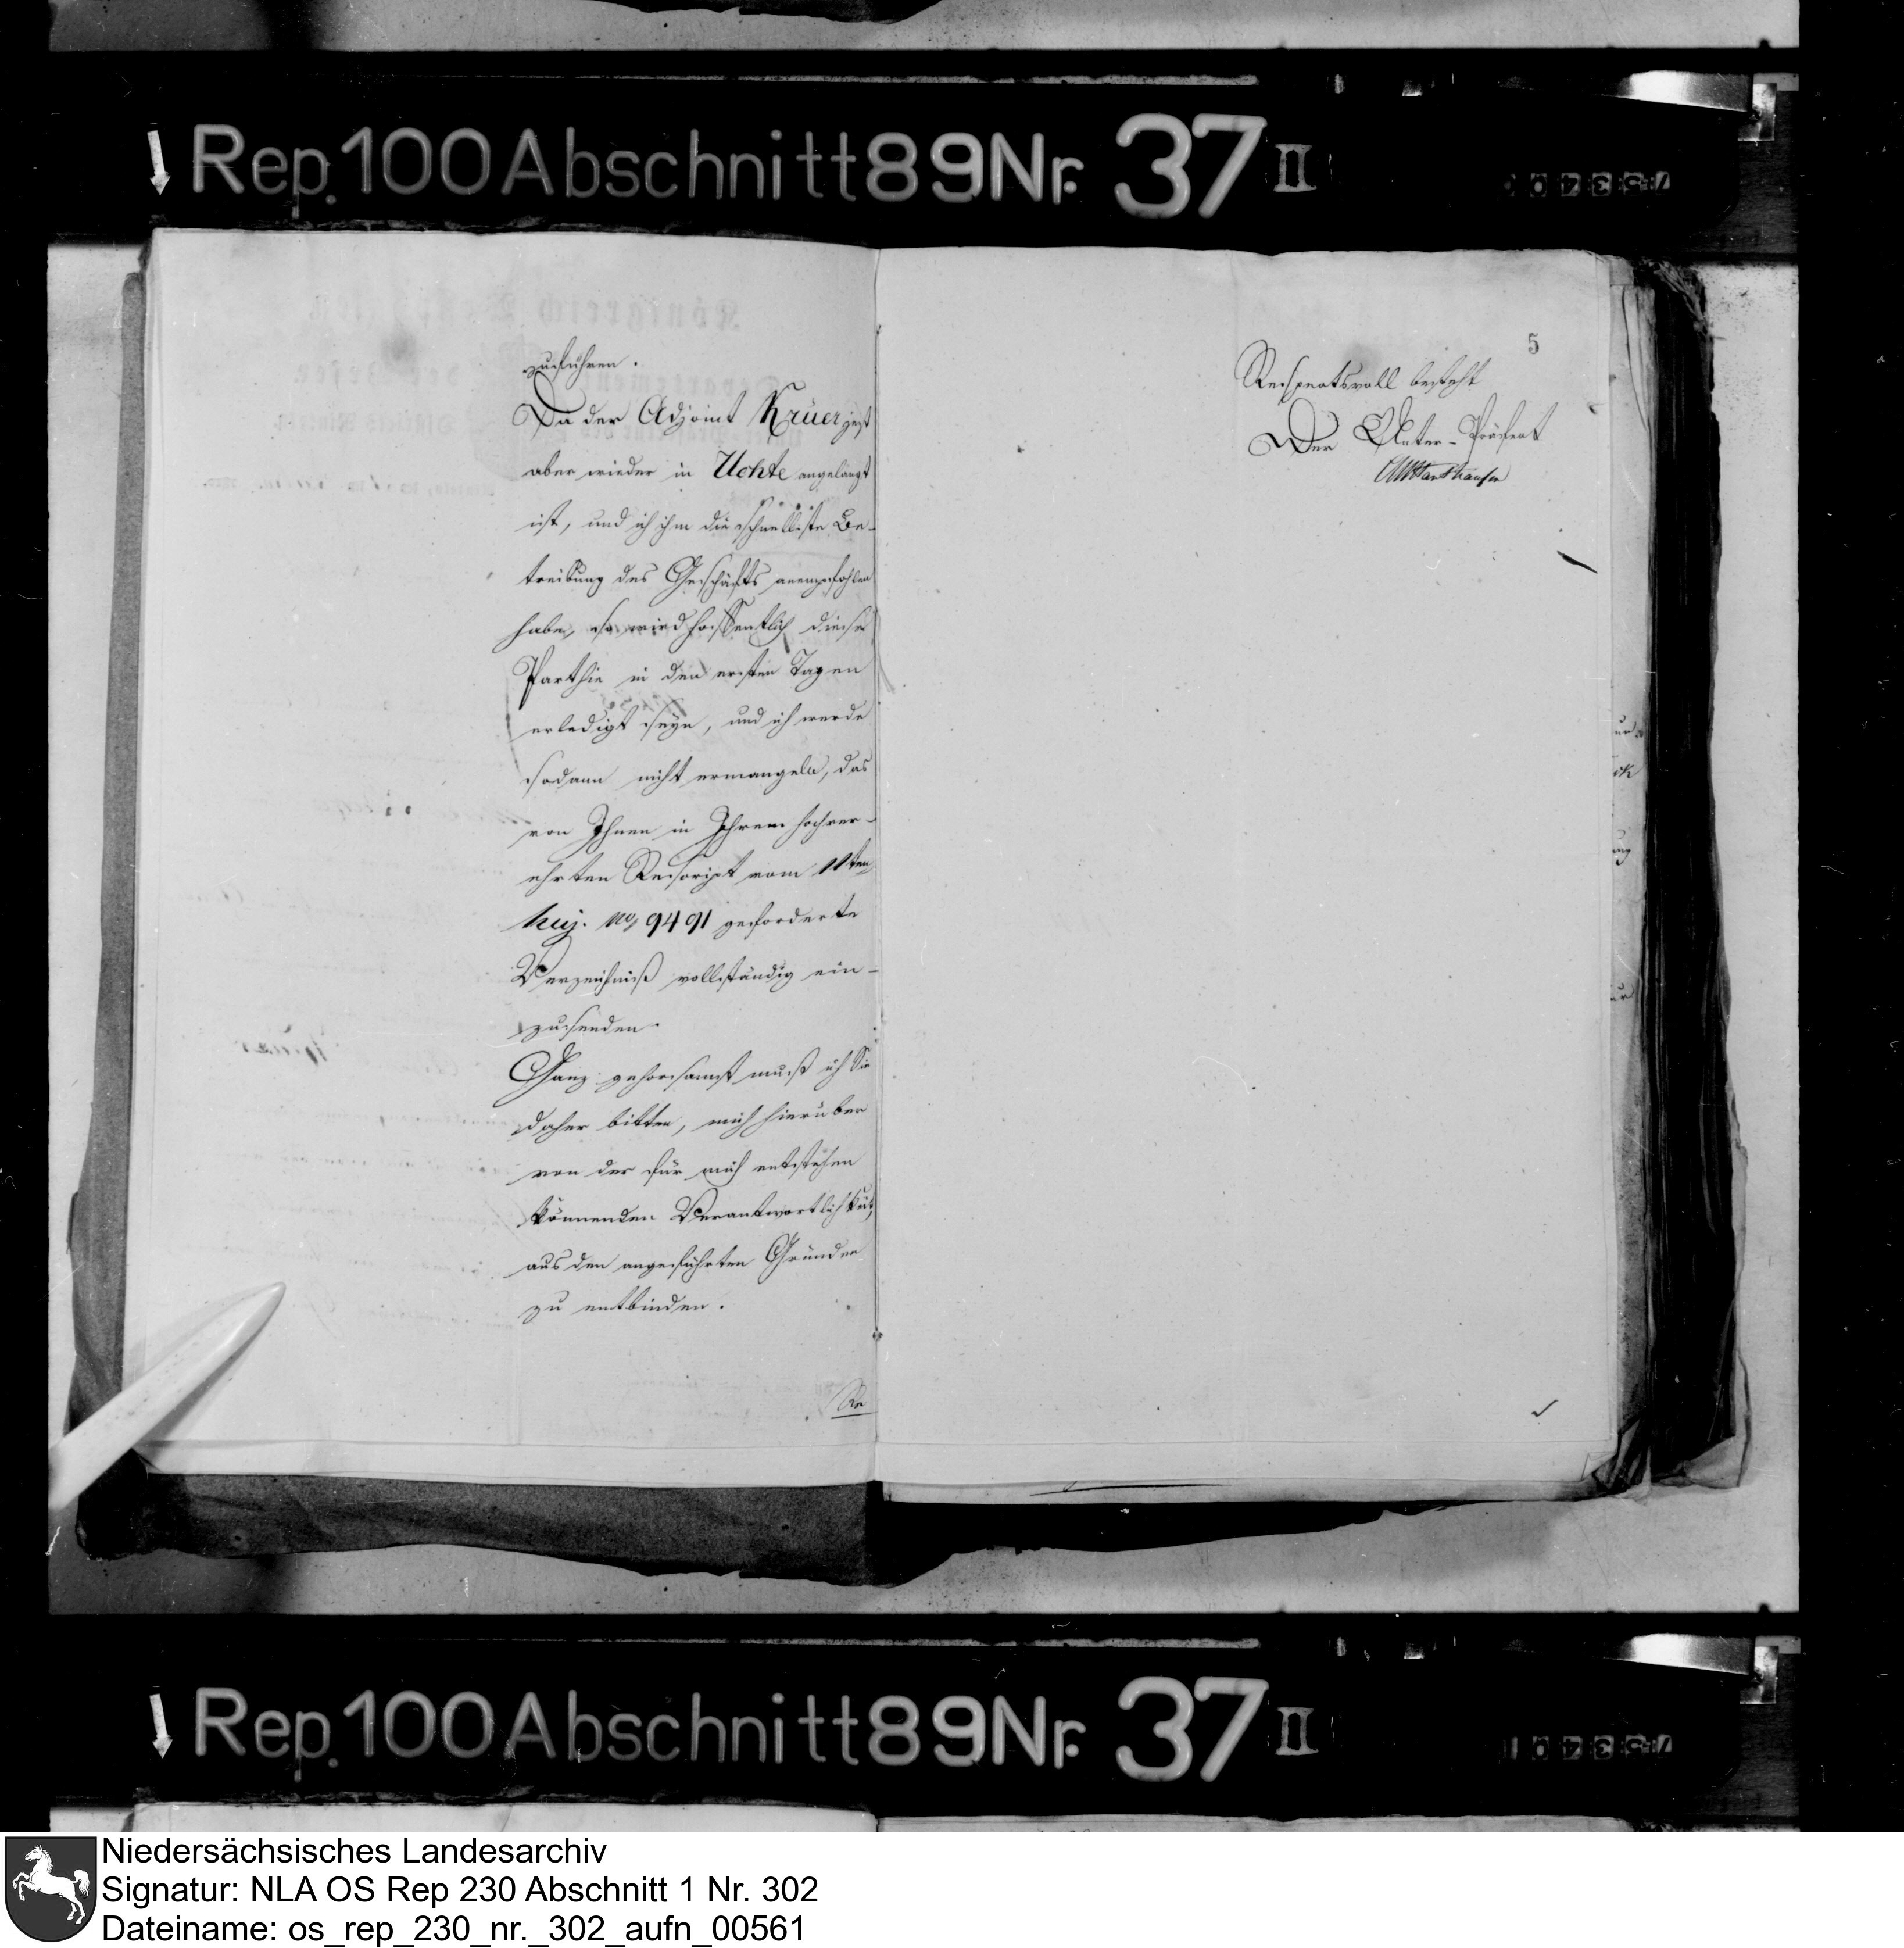 Rep. 100 Abschnitt 89 Nr. 37 II
zuführen.
Da der Adjoint Krüer jetzt
aber wieder in Uchte angelangt
ist, und ich ihm die schnelleste Be-
treibung des Geschäfts anempfohlen
habe, so wird hoffentlich diese
Parthie in den ersten Tagen
erledigt seyn, und ich werde
sodann nicht ermangeln, das
von Ihnen in Ihrem hochver-
ehrten Rescript vom 11ten
huj. no, 9491 geforderte
Verzeichniß vollständig ein-
zusenden.
Ganz gehorsamst muß ich Sie
daher bitten, mich hierüber
von der für mich entstehen
könnenden Verantwortlichkeit,
aus den angeführten Gründen
zu entbinden.
Re
5
Respectsvoll besteht
Der Unter-Präfect
Rep. 100 Abschnitt 89 Nr. 37 II
Niedersächsisches Landesarchiv
Signatur: NLA OS Rep 230 Abschnitt 1 Nr. 302
Dateiname: os_rep_230_nr._302_aufn_00561